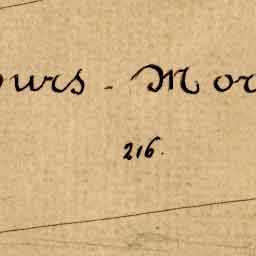 ours - Mor
216.